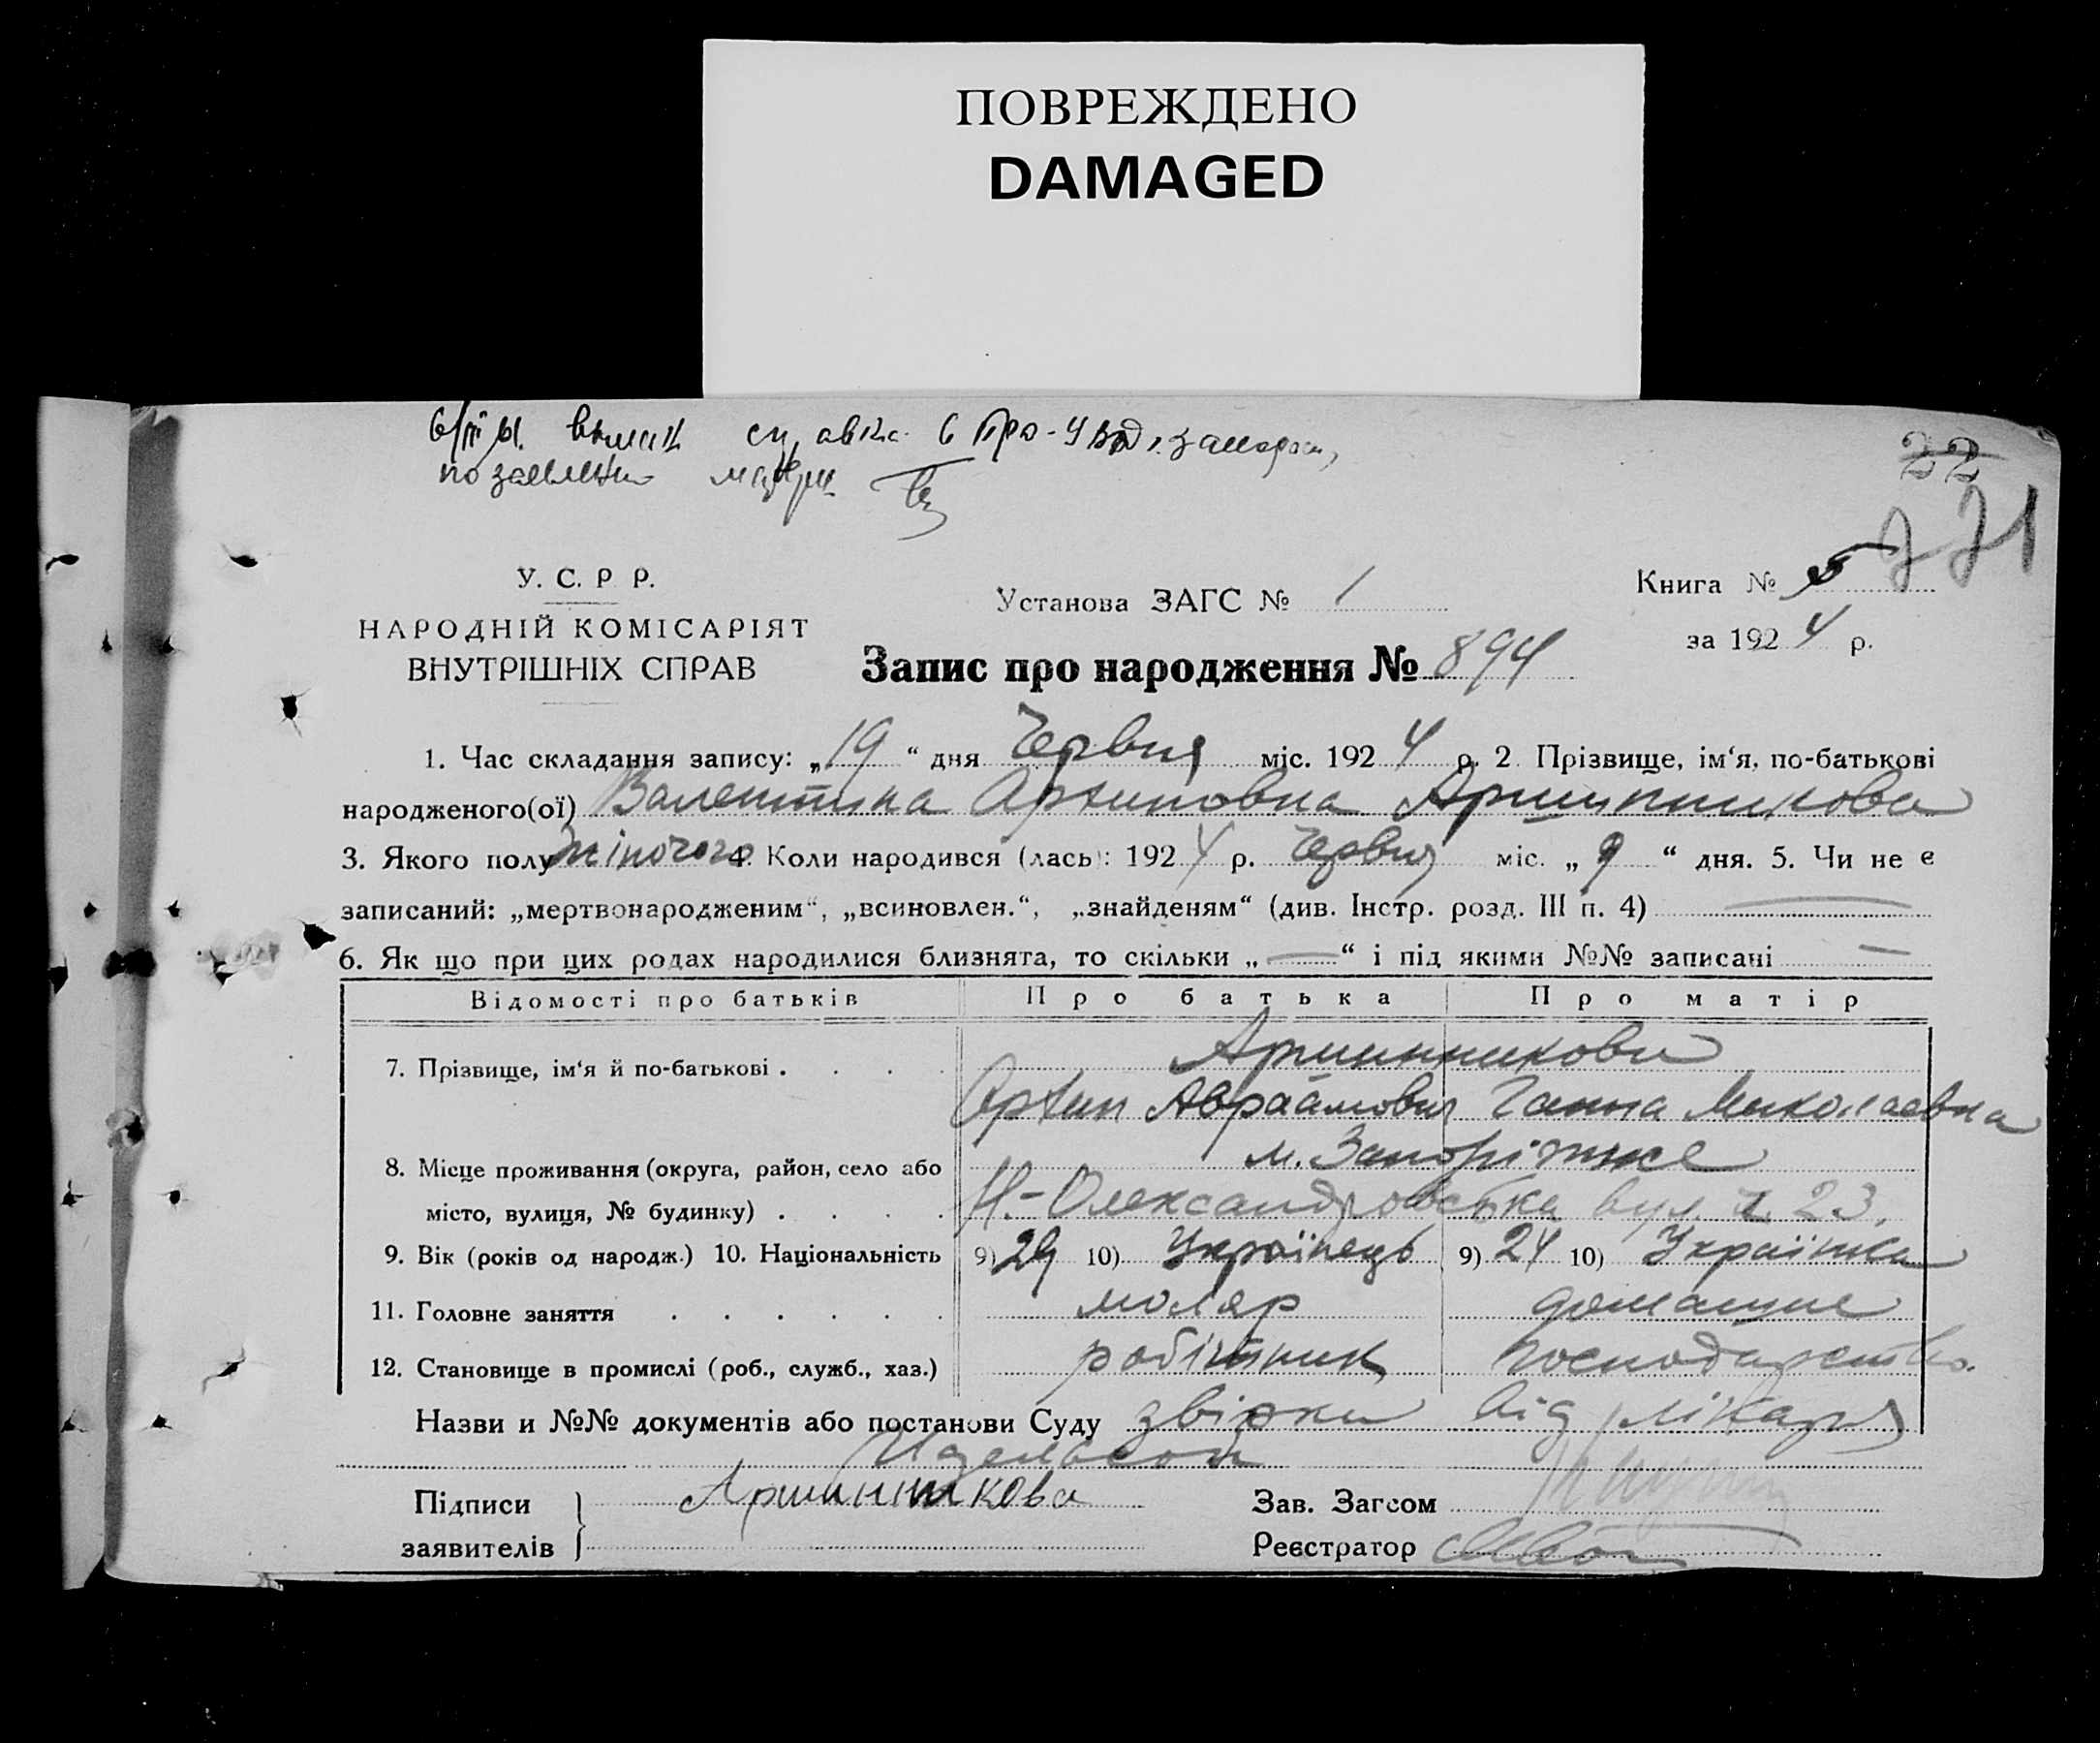 ПОВРЕЖДЕНО
DAMAGED
по заявлению матери
22
У. С. Р Р.
Установа ЗАГС № 1
Книга № 5
НАРОДНІЙ КОМІСАРІЯТ
за 1924 р.
ВНУТРІШНІХ СПРАВ
Запис про народження № 894
1. Час складання запису: „19“ дня Червня міс. 1924 р. 2. Прізвище, ім‘я, по-батькові
народженого(ої) Валентина Архиповна Аршинникова
3. Якого полу жіночого 4. Коли народився (лась): 1924 р. Червня міс. „9“ дня. 5. Чи не є
записаний: „мертвонародженим“, „всиновлен.“, „знайденям“ (див. Інстр. розд. III п. 4) —
6. Як що при цих родах народилися близнята, то скільки „—“ і під якими №№ записані —
Відомості про батьків Про батька Про матір
Аршинникови
7. Прізвище, ім‘я й по-батькові . . . .
Архип Авраамович Ганна Миколаевна
м. Запоріжже
8. Місце проживання (округа, район, село або
Н.-Олександровська вул. 23.
місто, вулиця, № будинку) . . . .
9. Вік (років од народж.) 10. Національність 9) 29 10) Українець 9) 24 10) Українка
11. Головне заняття . . . . . . маляр домашне
12. Становище в промислі (роб., служб., хаз.) робітник господарство.
Назви и №№ документів або постанови Суду від лікаря
Підписи Аршинникова Зав. Загсом
заявителів Реєстратор